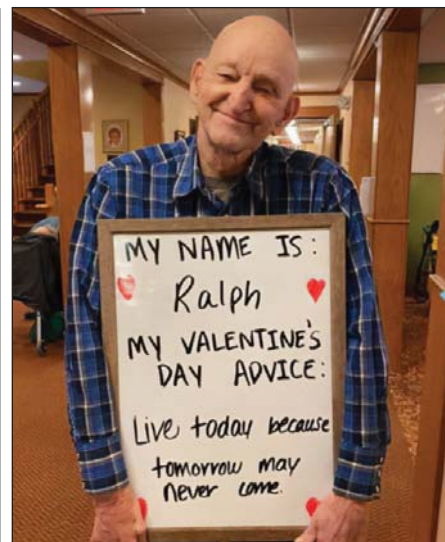 MY NAME IS:
Ralph
MY VALENTINE'S
DAY ADVICE:
Live today because
tomorrow may
never come.